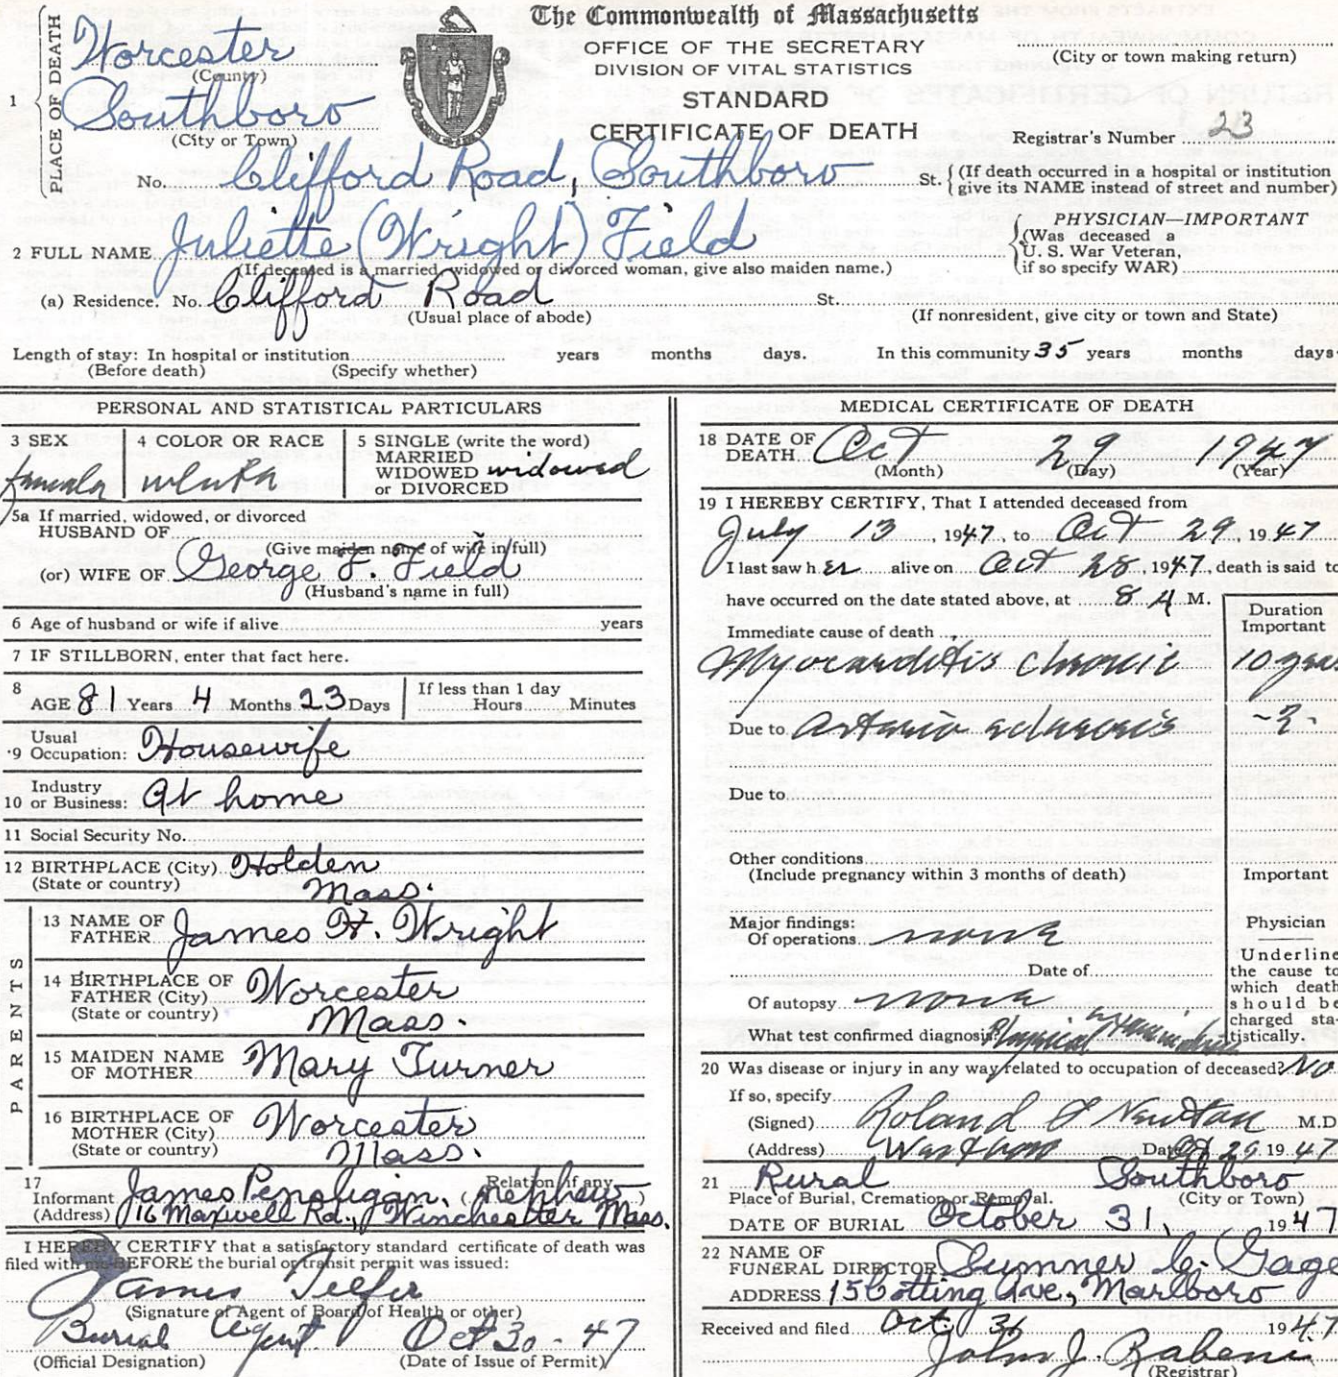 The Commonwealth of Massachusetts
OFFICE OF THE SECRETARY
DIVISION OF VITAL STATISTICS
STANDARD
CERTIFICATE OF DEATH
(City or town making return)
Registrar's Number 23
1 PLACE OF DEATH
Worcester
(County)
Southboro
(City or Town)
No. Clifford Road, Southboro St. (If death occurred in a hospital or institution
give its NAME instead of street and number)
2 FULL NAME Juliette (Wright) Field
(If deceased is a married, widowed or divorced woman, give also maiden name.)
PHYSICIAN—IMPORTANT
(Was deceased a
U. S. War Veteran,
if so specify WAR)
(a) Residence. No. Clifford Road St.
(Usual place of abode)
(If nonresident, give city or town and State)
Length of stay: In hospital or institution years months days. In this community 35 years months days.
(Before death) (Specify whether)
PERSONAL AND STATISTICAL PARTICULARS
3 SEX
female
4 COLOR OR RACE
white
5 SINGLE (write the word)
MARRIED
WIDOWED widowed
or DIVORCED
5a If married, widowed, or divorced
HUSBAND OF
(Give maiden name of wife in full)
(or) WIFE OF George F. Field
(Husband's name in full)
6 Age of husband or wife if alive years
7 IF STILLBORN, enter that fact here.
8 AGE 81 Years 4 Months 23 Days
If less than 1 day
Hours Minutes
9 Usual
Occupation: Housewife
10 Industry
or Business: At home
11 Social Security No.
12 BIRTHPLACE (City) Holden
(State or country) Mass.
PARENTS
13 NAME OF
FATHER James H. Wright
14 BIRTHPLACE OF
FATHER (City) Worcester
(State or country) Mass.
15 MAIDEN NAME
OF MOTHER Mary Turner
16 BIRTHPLACE OF
MOTHER (City) Worcester
(State or country) Mass.
17
Informant James Penaligan, (Relation, if any nephew)
(Address) 16 Maxwell Rd., Winchester Mass.
I HEREBY CERTIFY that a satisfactory standard certificate of death was
filed with me BEFORE the burial or transit permit was issued:
James Telfer
(Signature of Agent of Board of Health or other)
Burial Agent Oct 30 - 47
(Official Designation) (Date of Issue of Permit)
MEDICAL CERTIFICATE OF DEATH
18 DATE OF
DEATH Oct 29 1947
(Month) (Day) (Year)
19 I HEREBY CERTIFY, That I attended deceased from
July 13, 1947, to Oct 29, 1947
I last saw her alive on Oct 28, 1947, death is said to
have occurred on the date stated above, at 8 A M.
Duration
Important
Immediate cause of death
Myocarditis chronic 10 years
Due to arterio sclerosis -?-
Due to
Other conditions
(Include pregnancy within 3 months of death)
Important
Major findings:
Of operations none
Date of
Of autopsy none
What test confirmed diagnosis Physical examination
Physician
Underline
the cause to
which death
should be
charged sta-
tistically.
20 Was disease or injury in any way related to occupation of deceased? No
If so, specify
(Signed) Roland S Newton M.D.
(Address) Westboro Date Oct 29 1947
21 Rural Southboro
Place of Burial, Cremation or Removal. (City or Town)
DATE OF BURIAL October 31, 1947
22 NAME OF
FUNERAL DIRECTOR Sumner C. Gage
ADDRESS 15 Cotting Ave, Marlboro
Received and filed Oct. 31 1947
John J.
(Registrar)